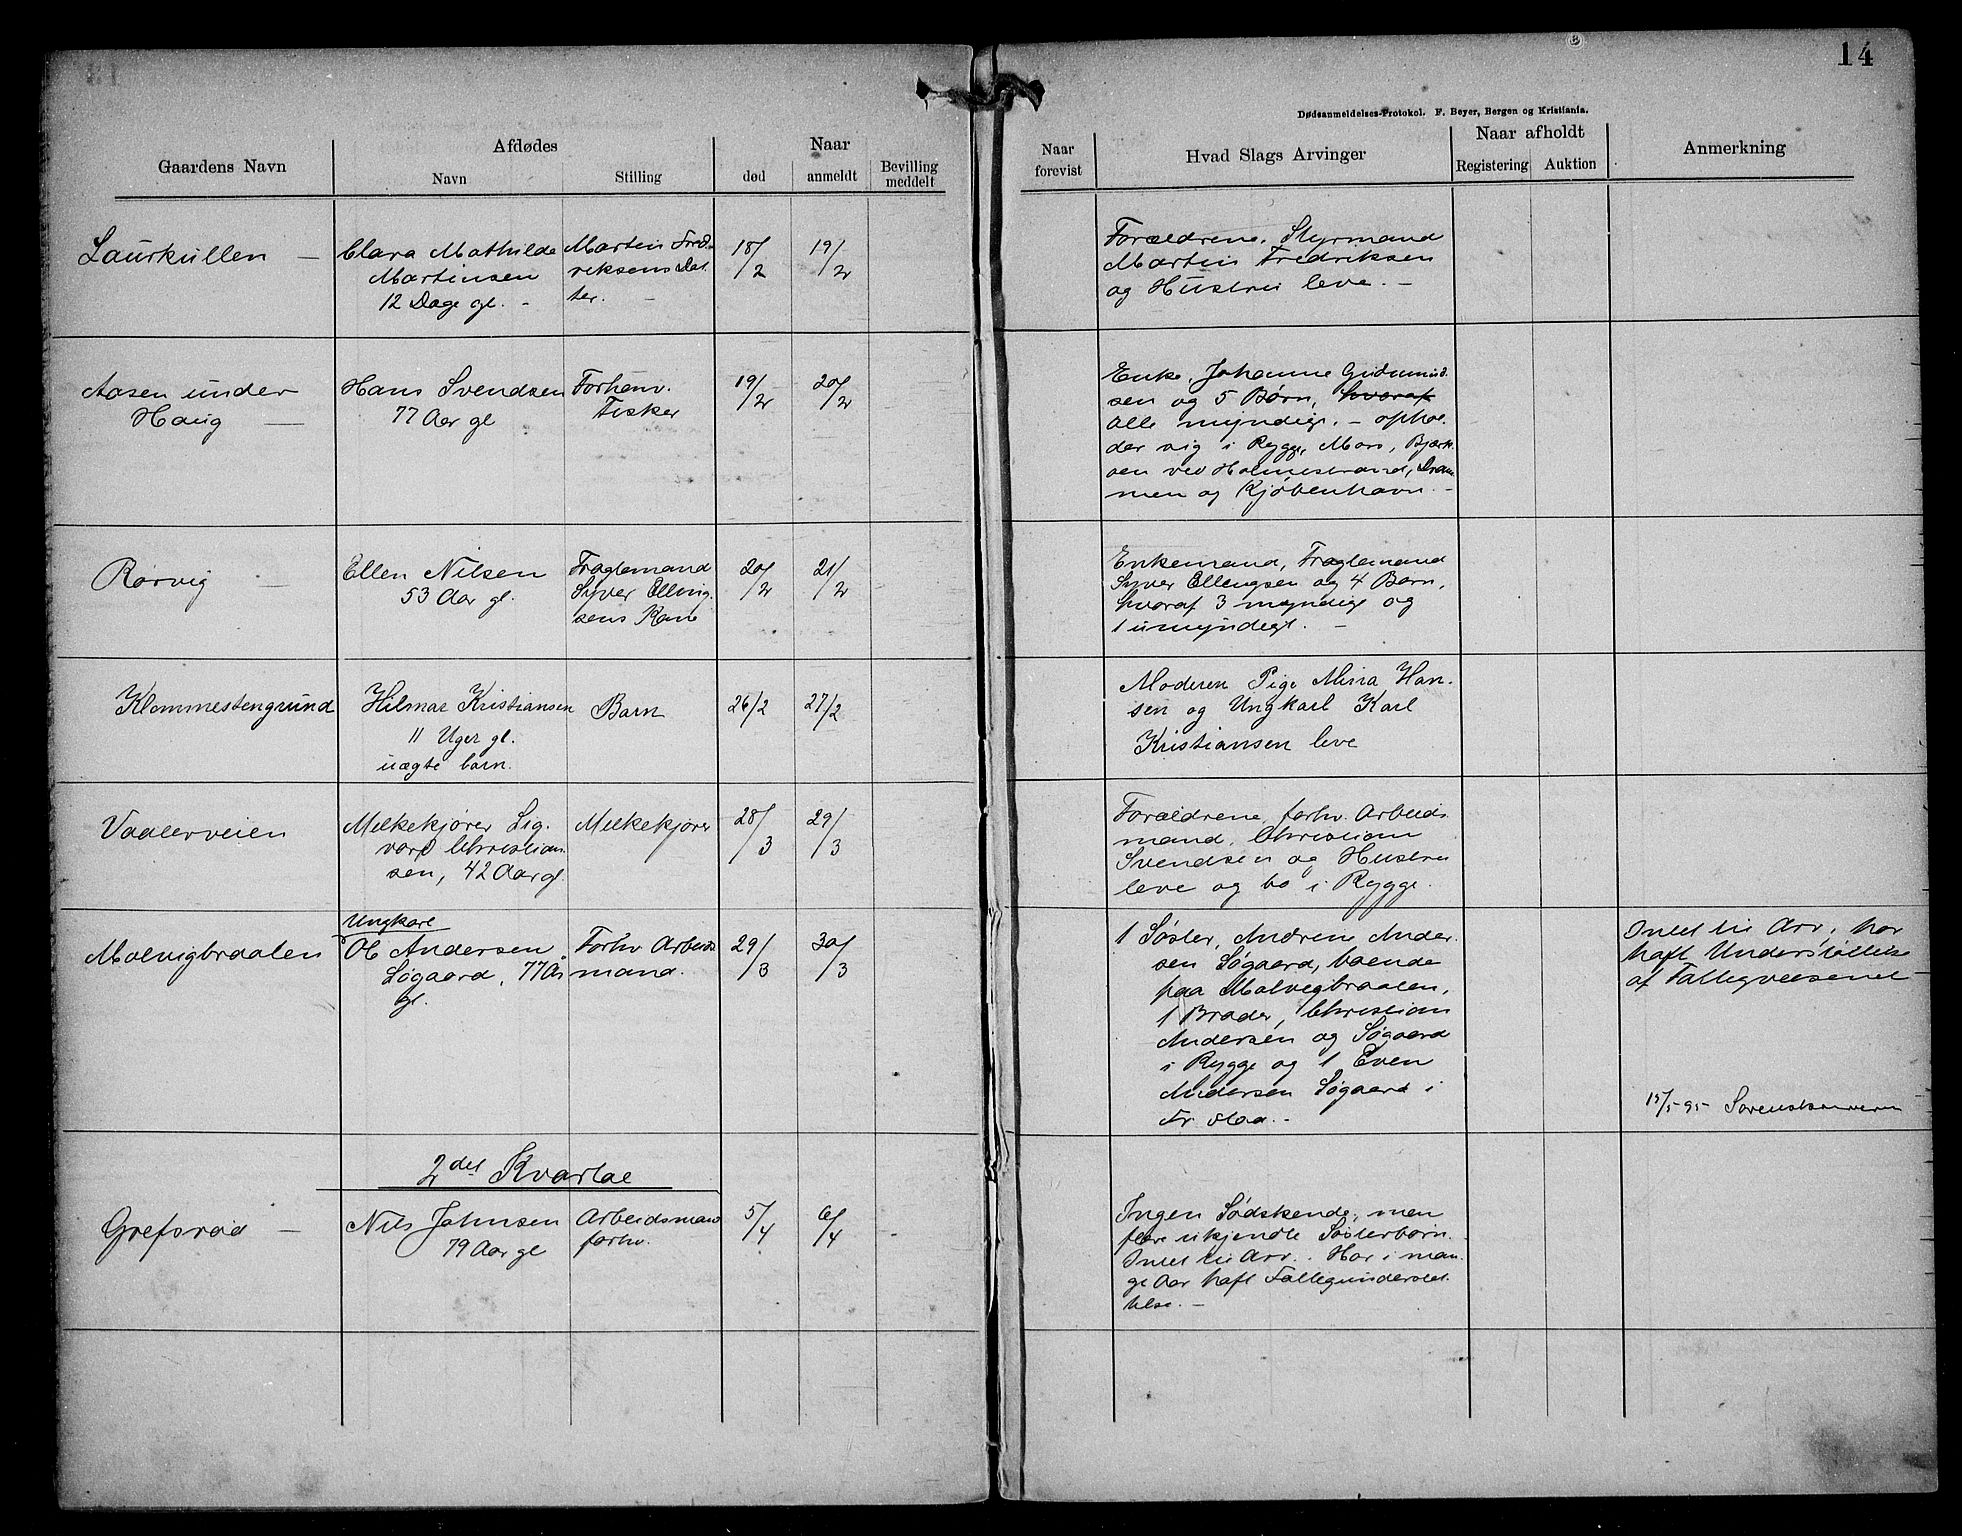 14
Dødsanmeldelses-Protokol. F. Beyer, Bergen og Kristiania.
Gaardens Navn
Afdødes
Navn
Stilling
Naar
død
anmeldt
Bevilling
meddelt
Naar
forevist
Hvad Slags Arvinger
Naar afholdt
Registering
Auktion
Anmerkning
Laurkullen —
Clara Mathilde
Martinsen
12 Dage gl. -
Martin Fred-
riksens Dat
ter. —
18/2
19/2
Forældrene, Styrmand
Martin Fredriksen
og Hustru leve. —
Aasen under
Haug —
Hans Svendsen
77 Aar gl
Forhenv.
Fisker
19/2
20/2
Enke, Johanne Gudmund-
sen og 5 Børn, hvoraf
alle myndige. — ophol-
der sig i Rygge, Moss, Bjerk-
øen ved Holmestrand, Dram
men og Kjøbenhavn. —
Rørvig —
Ellen Nilsen
53 Aar gl.
Fragtemand
Syver Elling-
sens Kone
20/2
21/2
Enkemand, Fragtemand
Syver Ellingsen og 4 Børn,
hvoraf 3 myndige og
1 umyndigt. —
Klommestengrund
Hilmar Kristiansen
11 Uger gl.
uægte barn.
Barn
26/2
27/2
Moderen Pige Mina Han-
sen og Ungkarl Karl
Kristiansen leve
Vaalerveien
Melkekjører Sig-
vard Christian-
sen, 42 Aar gl.
Melkekjører
28/3
29/3
Forældrene, forhv. Arbeids
mand, Christian
Svendsen og Hustru
leve og bo i Rygge.
Molvigbraaten
Ungkarl
Ole Andersen
Søgaard, 77 Aar
gl.
Forhv Arbeids
mand.
29/3
30/3
1 Søster, Andrene Ander-
sen Søgaard, boende
paa Molvigbraaten,
1 Broder, Christian
Andersen og Søgaard
i Rygge og 1 Even
Andersen Søgaard i
Intet til Arv, har
haft Understøttelse
af Fattigvæsenet
15/5-95 Sorenskriveren
2det Kvartal
Grefsrød —
Nils Johnsen
79 Aar gl
Arbeidsmand
forhv.
5/4
6/4
Ingen Sødskende, men
flere ukjendte Søsterbørn.
Intet til Arv. Har i man-
ge Aar haft Fattigunderstøt-
telse. —